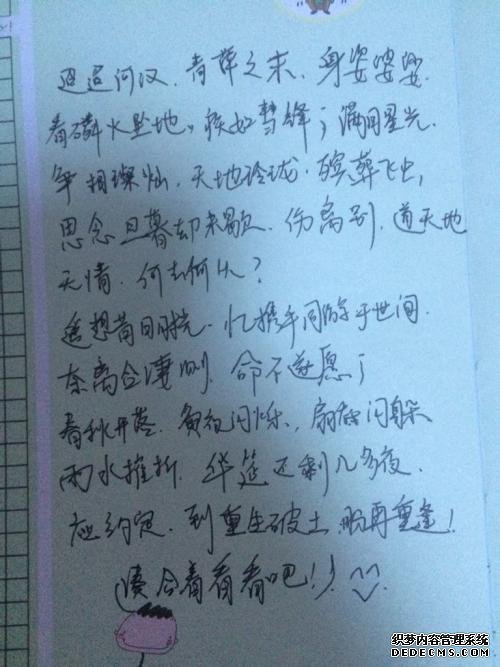 迢迢河汉，青萍之末，身姿婆娑，
看磷火坠地，疾如彗锋；满目星光，
争相璨灿，天地玲珑，殡葬飞虫，
思念旦暮却未歇，伤离别，道天地
无情，何去何从？
遥想昔日时光，忆携手同游于世间，
奈离合凄恻，命不遂愿；
春秋开落，夤夜闪烁，扇底闪躲，
雨水摧折，华筵还剩几多夜，
应约定，到重生破土，盼再重逢！
凑合着看看吧！
织梦内容管理系统
DEDECMS.COM